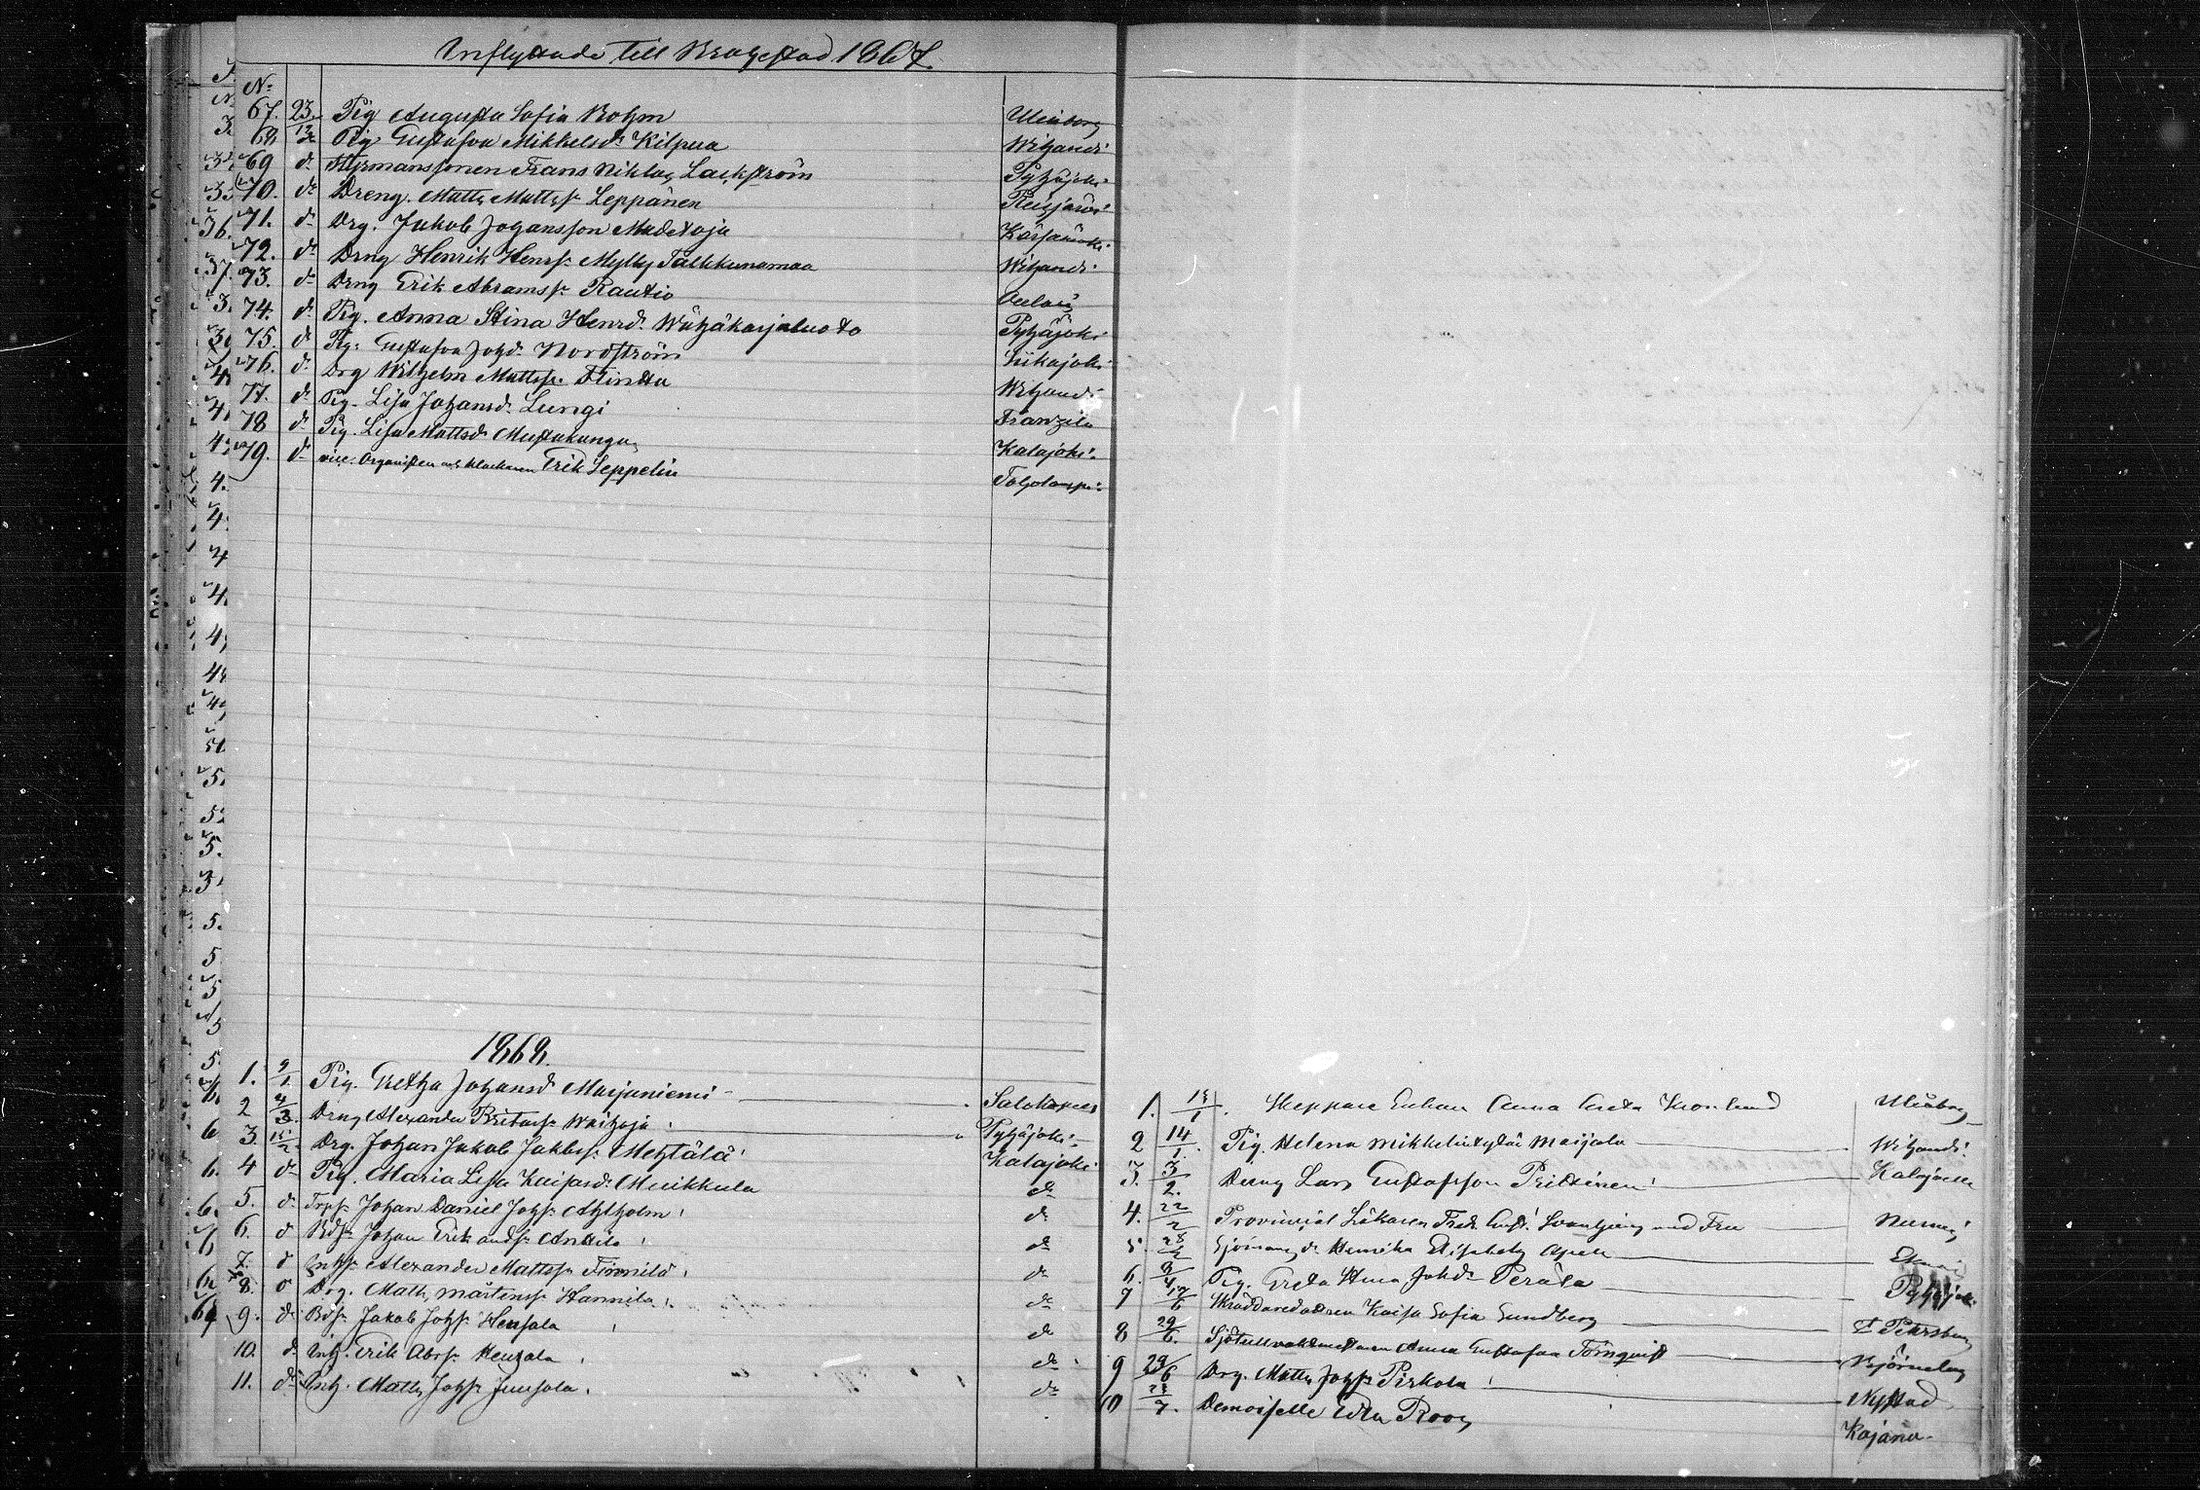 Inflyttade till Brahestad 1867.
No
67. 23/12 Pig Augusta Sofia Bohm Uleåborg
68 Pig Gustafva Mikkelsdr Kilpua Wihandi
69 do Styrmanssonen Frans Niklas Lackström Pyhäjoki
70. do Dreng. Matts Mattss. Leppänen Reisjärvi
71. do Drg. Jakob Johansson Madetoja Kärsämäki
72. do Drng Henrik Henrss. Mylly Talkkunamaa Wihandi
73. do Drng Erik Abramss. Rautio
74. do Pig. Anna Stina Henrd. Wähäkarjaluoto Pyhäjoki
75. do Pig. Gustafva Johd. Nordström Siikajoki
76. do Drg Wilhelm Mattss. Flinkta Wihandi
77. do Pig. Lisa Johansd. Lungi Franzila
78 do Pig. Lisa Mattsd. Mustakangas Kalajoki
79. do vice Organisten och klockaren Erik Leppelin Toholampi
1868.
1. 9/1 Pig. Gretha Johansd. Marjaniemi Salo
2 4/3 Drng Alexander Waihoja Pyhäjoki
3. Drg. Johan Jakob Jakbss. Mehtälä Kalajoki
4 do Pig. Maria Lisa Kaisasd. Muikkula do
5. do Johan Daniel Johss. Ahlholm do
6. do Johan Erik Andss. Anttila do
7. do Alexander Mattss. Finnilä do
8. do Drg. Matts Mårtenss. Hannila do
9. do Bdss. Jakob Johss. Heusala do
10. do Inh. Erik Abrss. Heusala do
11. do Inh. Matts Johss. Juusola do
1. 13/1. Skeppare Enkan Anna Greta Kronlund Uleåborg
2 14/1. Pig. Helena Mikkelintytär Maijala Wihandi
3. 3/2. Drng Lars Gustafsson Pritinen Kalajoki
4. 22/2 Provincial Läkaren Fredr. med Fru
5. Sjömans d. Henrika Elisabeth
6. Pig. Greta Stina Johd. Perälä Pyhäjoki
7 17/6 Skräddaredottren Kaisa Sofia Sundberg St Petersburg
8 29/6. Sjötullvaktmästaren Anna Gustafva Törnqvist Björneborg
9 29/6 Drg. Matts Johss. Pirkola Nystad
10 Demoiselle Edla Roos Kajana